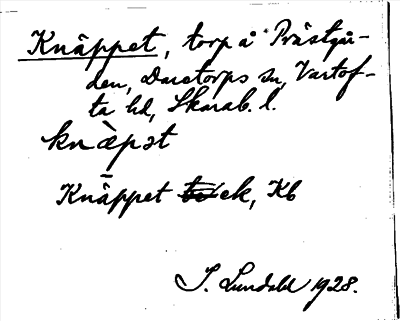 Knäppet, torp å Prästgår-
den, Daretorps sn, Vartof-
ta hd, Skarab. l.
knæ̀pət
Knäppet ek, Kb
S. Lundahl 1928.